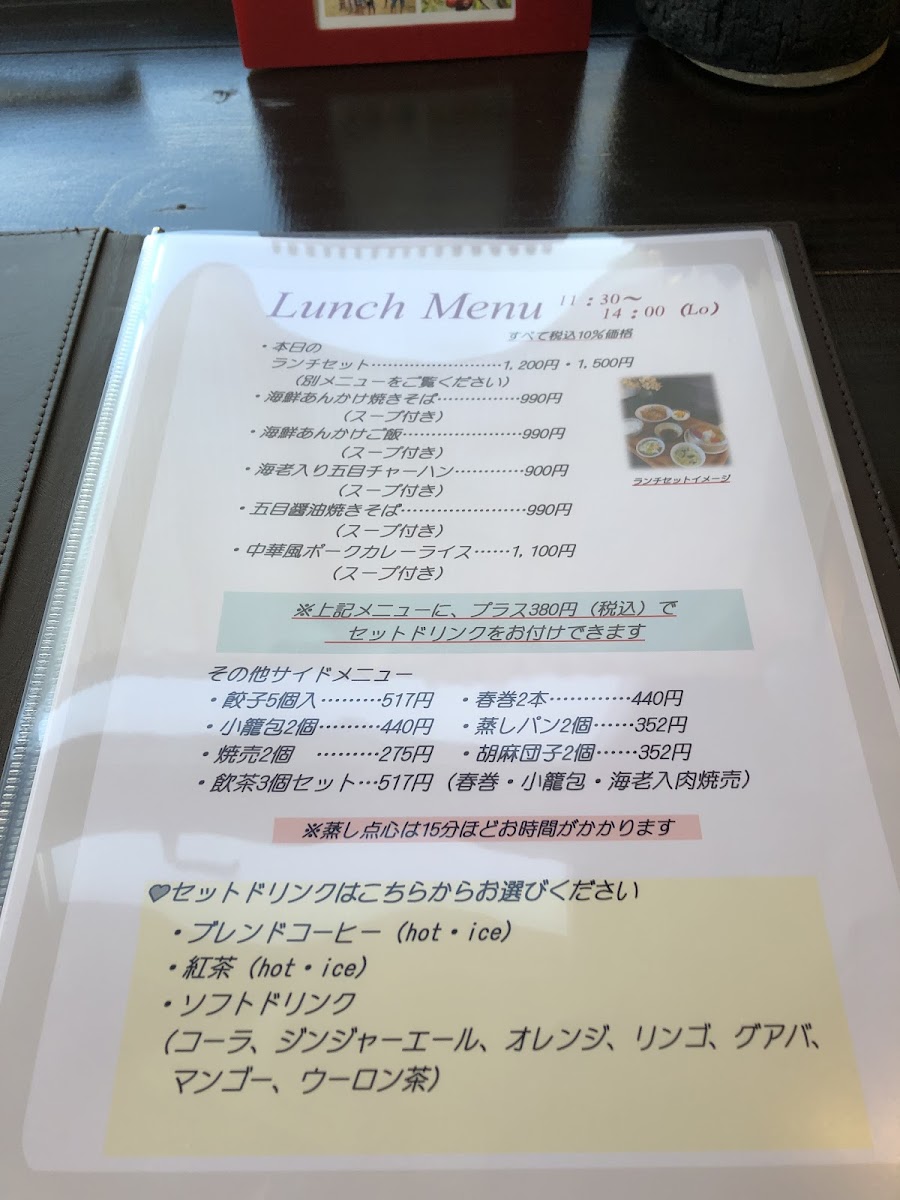 Lunch Menu 11：30～
14：00（Lo）
すべて税込10%価格
・本日の
ランチセット……………………1,200円・1,500円
（別メニューをご覧ください）
・海鮮あんかけ焼きそば……………990円
（スープ付き）
・海鮮あんかけご飯…………………990円
（スープ付き）
・海老入り五目チャーハン…………900円
（スープ付き）
ランチセットイメージ
・五目醤油焼きそば…………………990円
（スープ付き）
・中華風ポークカレーライス……1,100円
（スープ付き）
※上記メニューに、プラス380円（税込）で
セットドリンクをお付けできます
その他サイドメニュー
・餃子5個入………517円 ・春巻2本…………440円
・小籠包2個………440円 ・蒸しパン2個……352円
・焼売2個 ………275円 ・胡麻団子2個……352円
・飲茶3個セット…517円（春巻・小籠包・海老入肉焼売）
※蒸し点心は15分ほどお時間がかかります
♥セットドリンクはこちらからお選びください
・ブレンドコーヒー（hot・ice）
・紅茶（hot・ice）
・ソフトドリンク
（コーラ、ジンジャーエール、オレンジ、リンゴ、グアバ、
マンゴー、ウーロン茶）